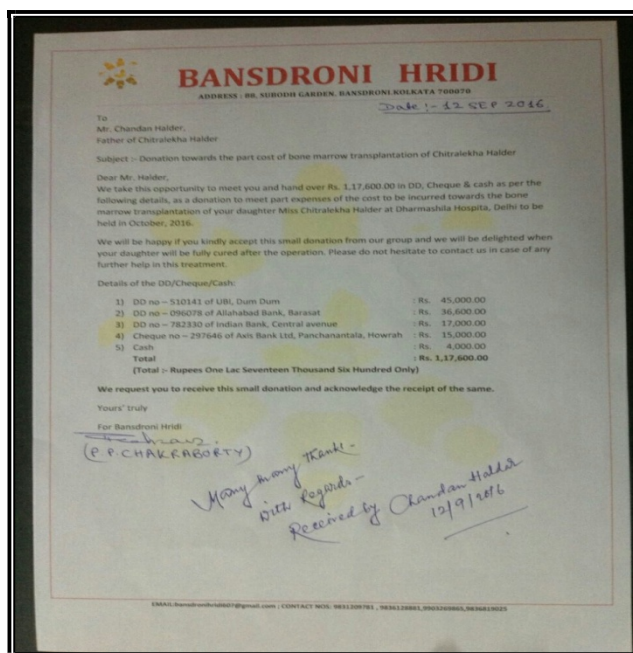 BANSDRONI HRIDI
ADDRESS : 88, SUBODH GARDEN, BANSDRONI KOLKATA 700070
Date :- 12 SEP 2016.
To
Mr. Chandan Halder,
Father of Chitralekha Halder
Subject :- Donation towards the part cost of bone marrow transplantation of Chitralekha Halder
Dear Mr. Halder,
We take this opportunity to meet you and hand over Rs. 1,17,600.00 in DD, Cheque & cash as per the
following details, as a donation to meet part expenses of the cost to be incurred towards the bone
marrow transplantation of your daughter Miss Chitralekha Halder at Dharmashila Hospita, Delhi to be
held in October, 2016.
We will be happy if you kindly accept this small donation from our group and we will be delighted when
your daughter will be fully cured after the operation. Please do not hesitate to contact us in case of any
further help in this treatment.
Details of the DD/Cheque/Cash:
1) DD no – 510141 of UBI, Dum Dum : Rs. 45,000.00
2) DD no – 096078 of Allahabad Bank, Barasat : Rs. 36,600.00
3) DD no – 782330 of Indian Bank, Central avenue : Rs. 17,000.00
4) Cheque no – 297646 of Axis Bank Ltd, Panchanantala, Howrah : Rs. 15,000.00
5) Cash : Rs. 4,000.00
Total : Rs. 1,17,600.00
(Total :- Rupees One Lac Seventeen Thousand Six Hundred Only)
We request you to receive this small donation and acknowledge the receipt of the same.
Yours' truly
For Bansdroni Hridi
(P. P. CHAKRABORTY)
Many many Thank -
With Regards -
Received by Chandan Halder
12/9/2016
EMAIL:bansdronihridi607@gmail.com ; CONTACT NOS: 9831209781 , 9836128881,9903269865,9836819025